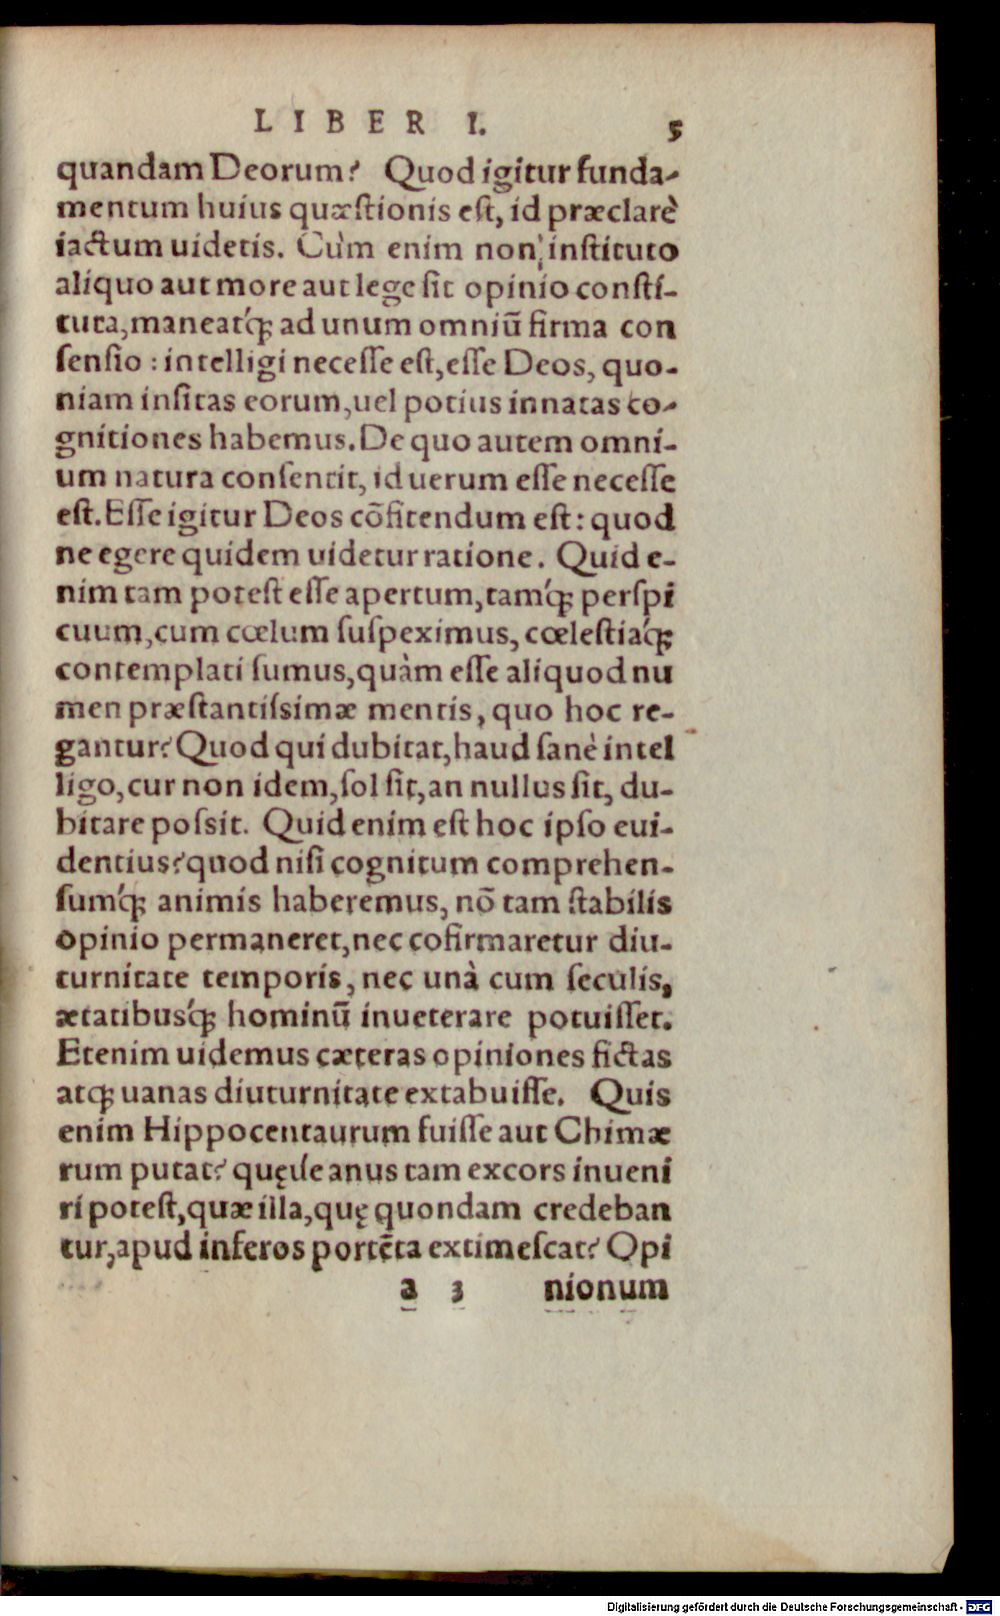 LIBER I. 5
quandam Deorum? Quod igitur funda-
mentum huius quæſtionis eſt, id præclarè
iactum uidetis. Cùm enim non inſtituto
aliquo aut more aut lege ſit opinio conſti-
tuta, maneatq́; ad unum omniũ firma con
ſenſio : intelligi neceſſe eſt, eſſe Deos, quo-
niam inſitas eorum, uel potius innatas co-
gnitiones habemus. De quo autem omni-
um natura conſentit, id uerum eſſe neceſſe
eſt. Eſſe igitur Deos cõfitendum eſt: quod
ne egere quidem uidetur ratione. Quid e-
nim tam poteſt eſſe apertum, tamq́; perſpi
cuum, cum cœlum ſuſpeximus, cœleſtiaq́;
contemplati ſumus, quàm eſſe aliquod nu
men præſtantiſsimæ mentis, quo hoc re-
gantur? Quod qui dubitat, haud ſanè intel
ligo, cur non idem, ſol ſit, an nullus ſit, du-
bitare poſsit. Quid enim eſt hoc ipſo eui-
dentius? quod niſi cognitum comprehen-
ſumq́; animis haberemus, nõ tam ſtabilis
opinio permaneret, nec cofirmaretur diu-
turnitate temporis, nec unà cum ſeculis,
ætatibusq́; hominũ inueterare potuiſſet.
Etenim uidemus cæteras opiniones fictas
atq; uanas diuturnitate extabuiſſe. Quis
enim Hippocentaurum fuiſſe aut Chimæ
rum putat? quęue anus tam excors inueni
ri poteſt, quæ illa, quę quondam credeban
tur, apud inferos portẽta extimeſcat? Opi
a 3 nionum
Digitalisierung gefördert durch die Deutsche Forschungsgemeinschaft - DFG